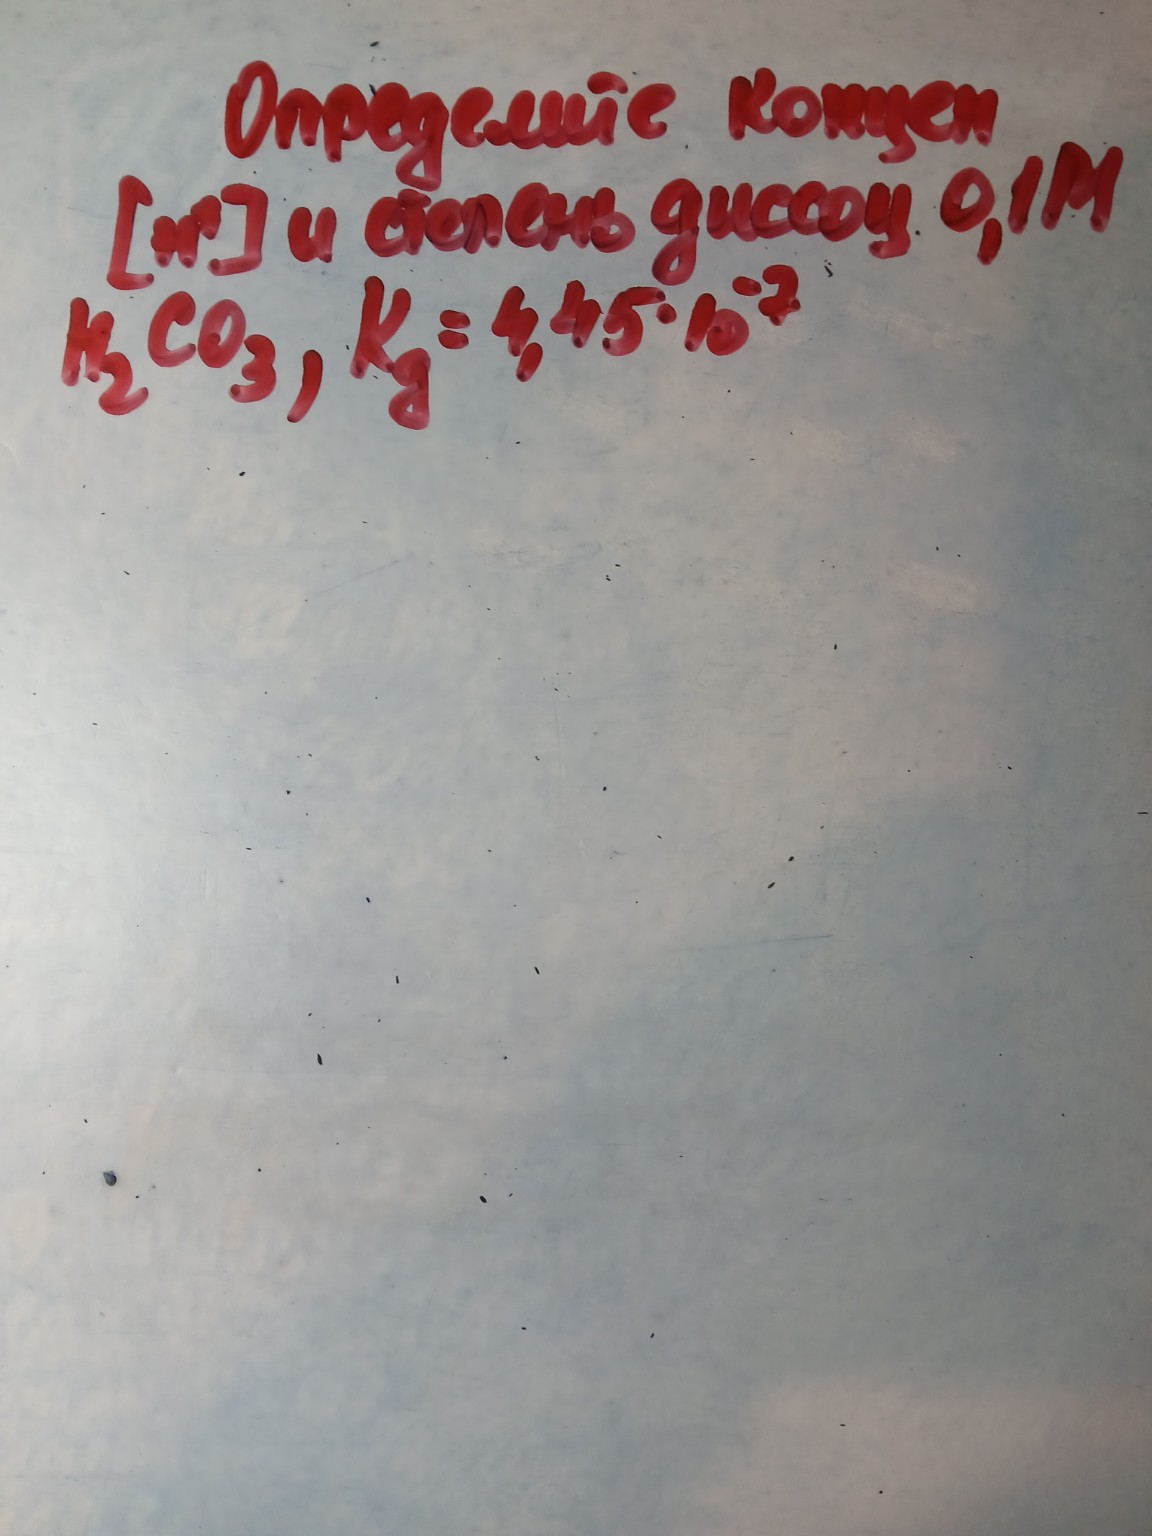 Определите концен
[н⁺] и степень диссоц. 0,1М
H₂CO₃, Kд = 4,45·10⁻⁷